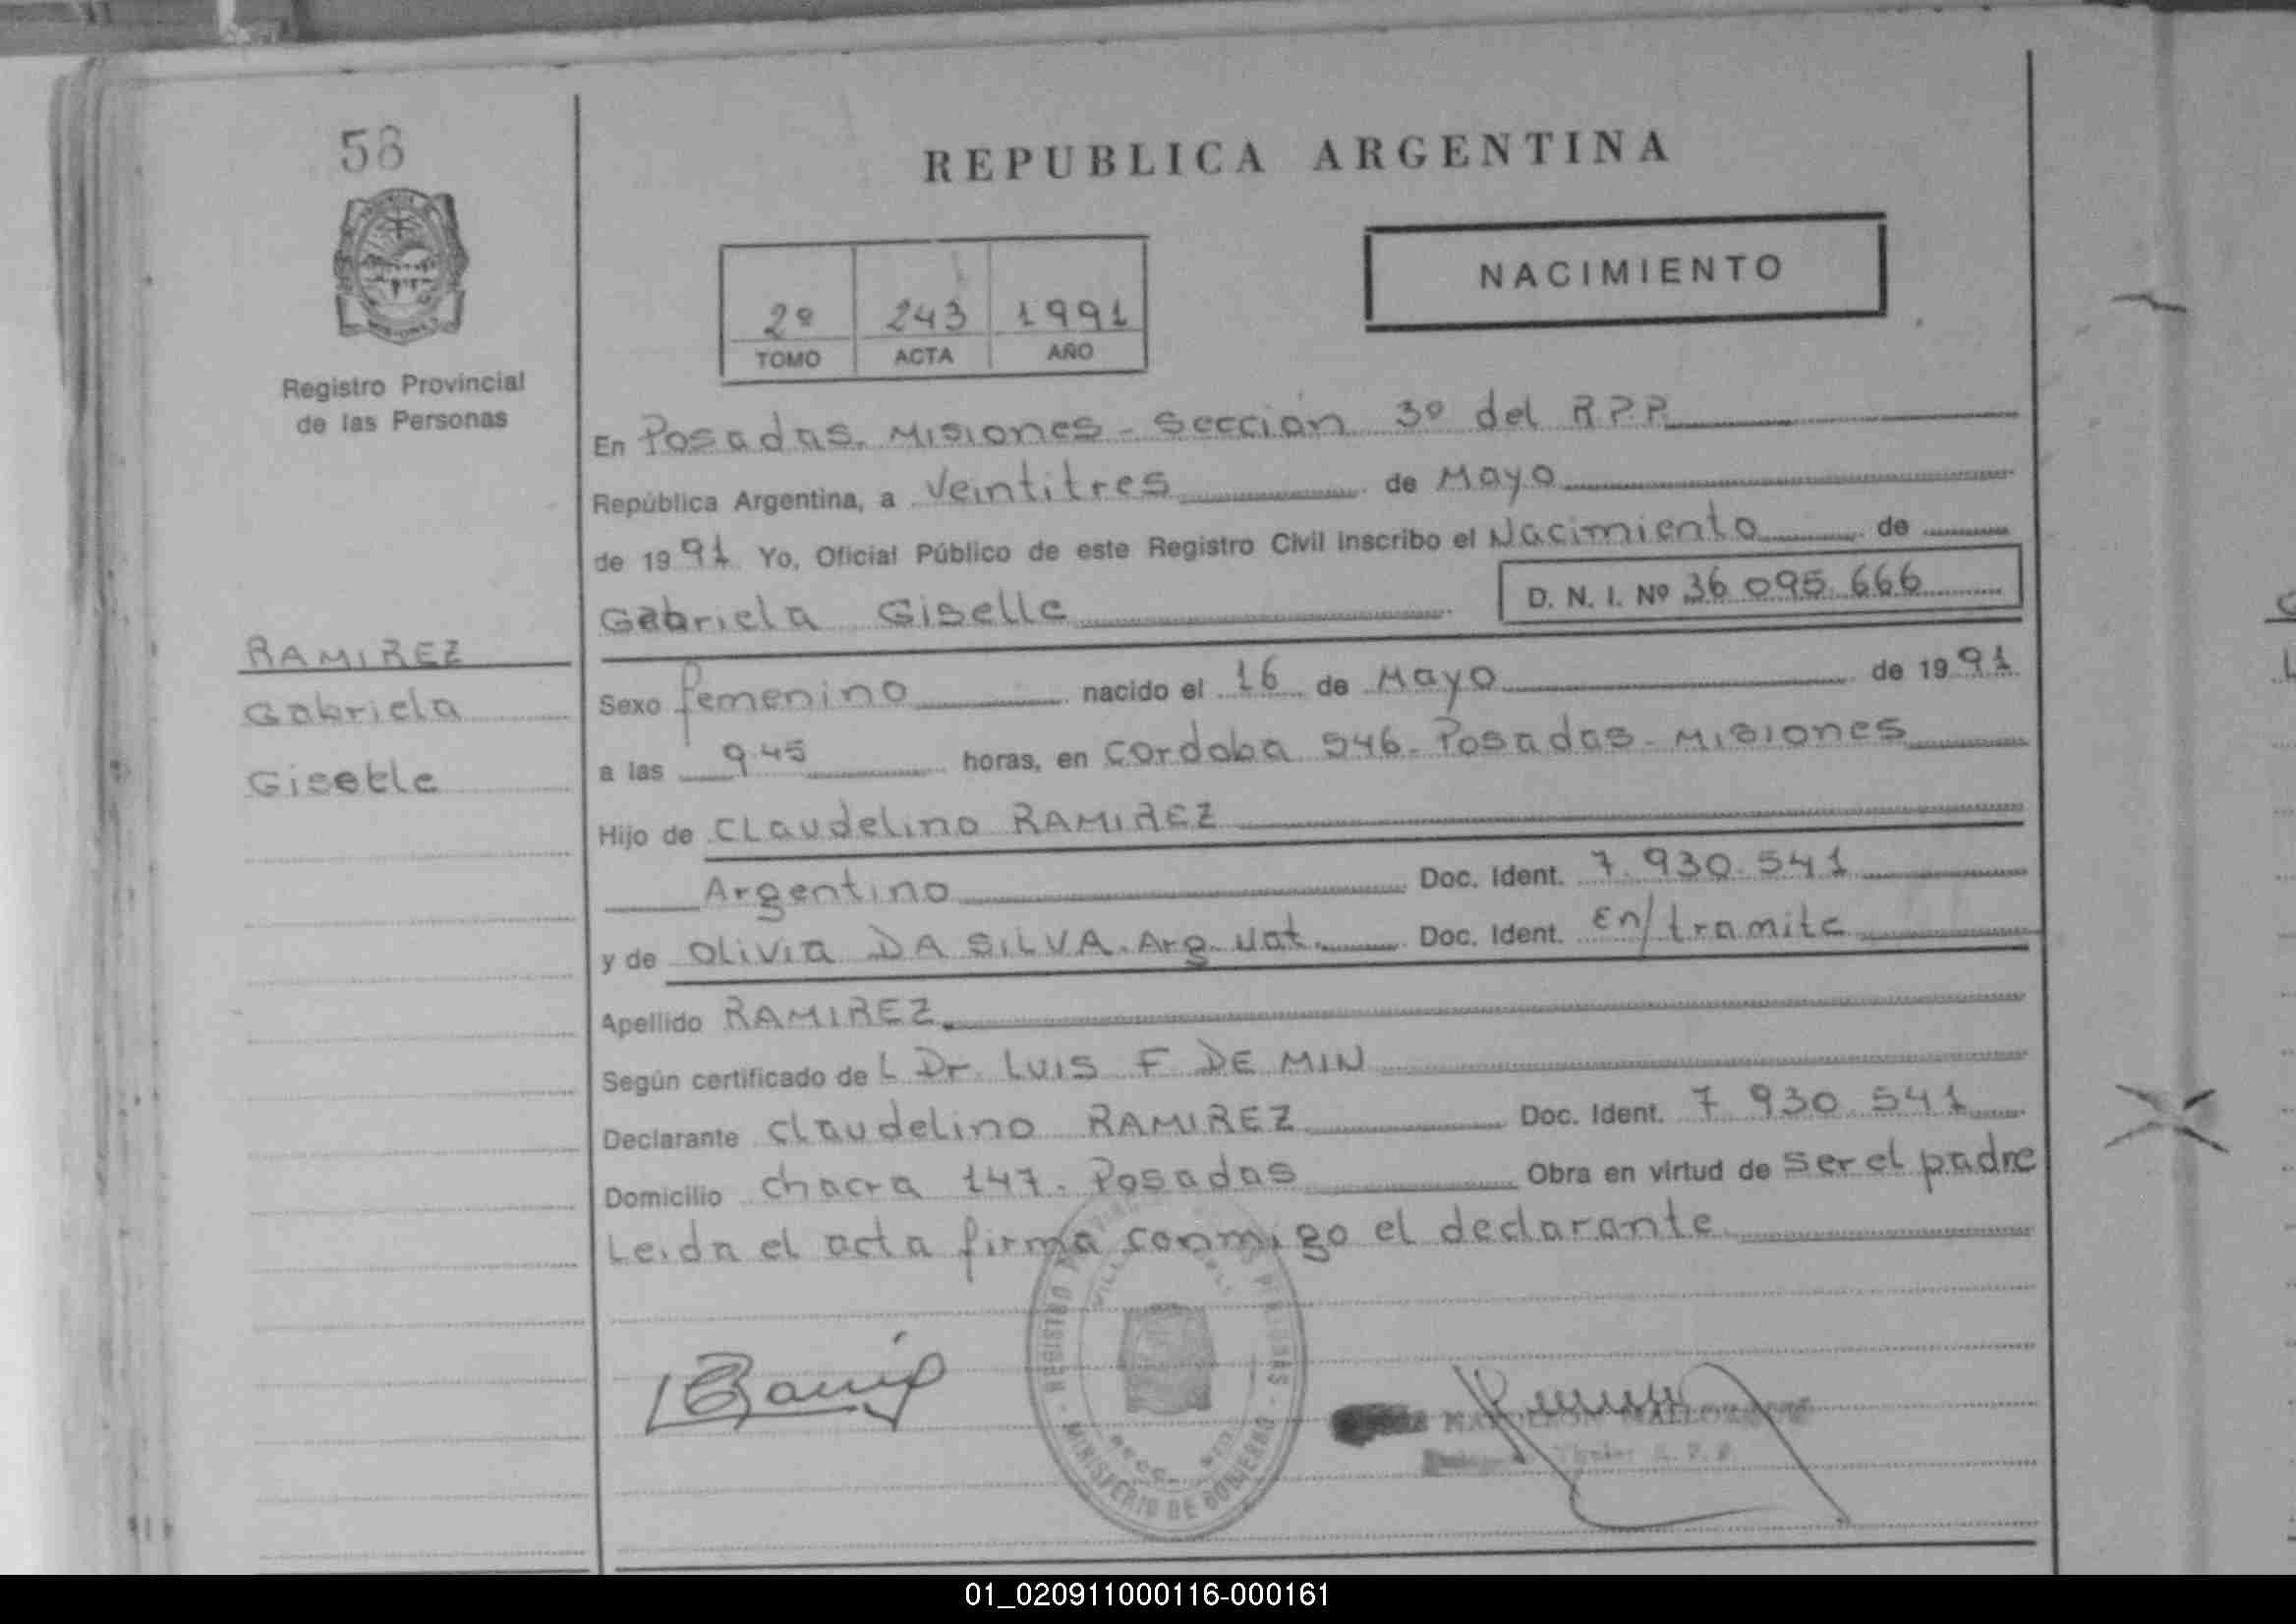 58
REPUBLICA ARGENTINA
NACIMIENTO
2º 243 1991
TOMO ACTA AÑO
Registro Provincial
de las Personas
En Posadas. Misiones - Sección 3º del R.P.P.
República Argentina, a Veintitres de Mayo
de 1991 Yo, Oficial Público de este Registro Civil inscribo el Nacimiento de
Gabriela Giselle D. N. I. Nº 36 095.666
RAMIREZ
Gabriela
Giselle
Sexo femenino nacido el 16 de Mayo de 1991
a las 9.45 horas, en Cordoba 546. Posadas - Misiones
Hijo de Claudelino RAMIREZ
Argentino Doc. Ident. 7.930.541
y de Olivia DA SILVA. Arg. Nat. Doc. Ident. En/tramite
Apellido RAMIREZ.
Según certificado de L Dr. Luis F DE MIN
Declarante Claudelino RAMIREZ Doc. Ident. 7 930.541
Domicilio Chacra 147. Posadas Obra en virtud de ser el padre
Leida el acta firma conmigo el declarante
REGISTRO PERSONAS
MINISTERIO DE GOBIERNO
NAPOLEON
01_020911000116-000161